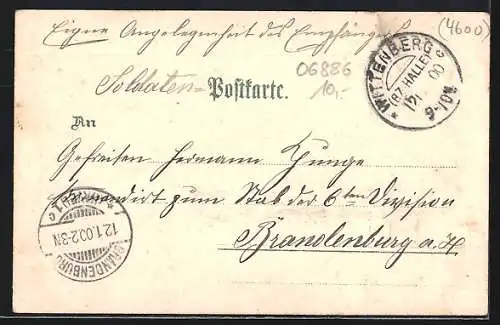 Eigene Angelegenheit des Empfängers
(4600)
06886
10,-
WITTENBERG
(BZ. HALLE)
12 1 00
9-10V.
Soldaten-Postkarte.
An
Gefreiten Hermann Zunge
Kommandirt zum Stab der 6ten Division
Brandenburg a. H
12.1.00.2-3N
BRANDENBURG